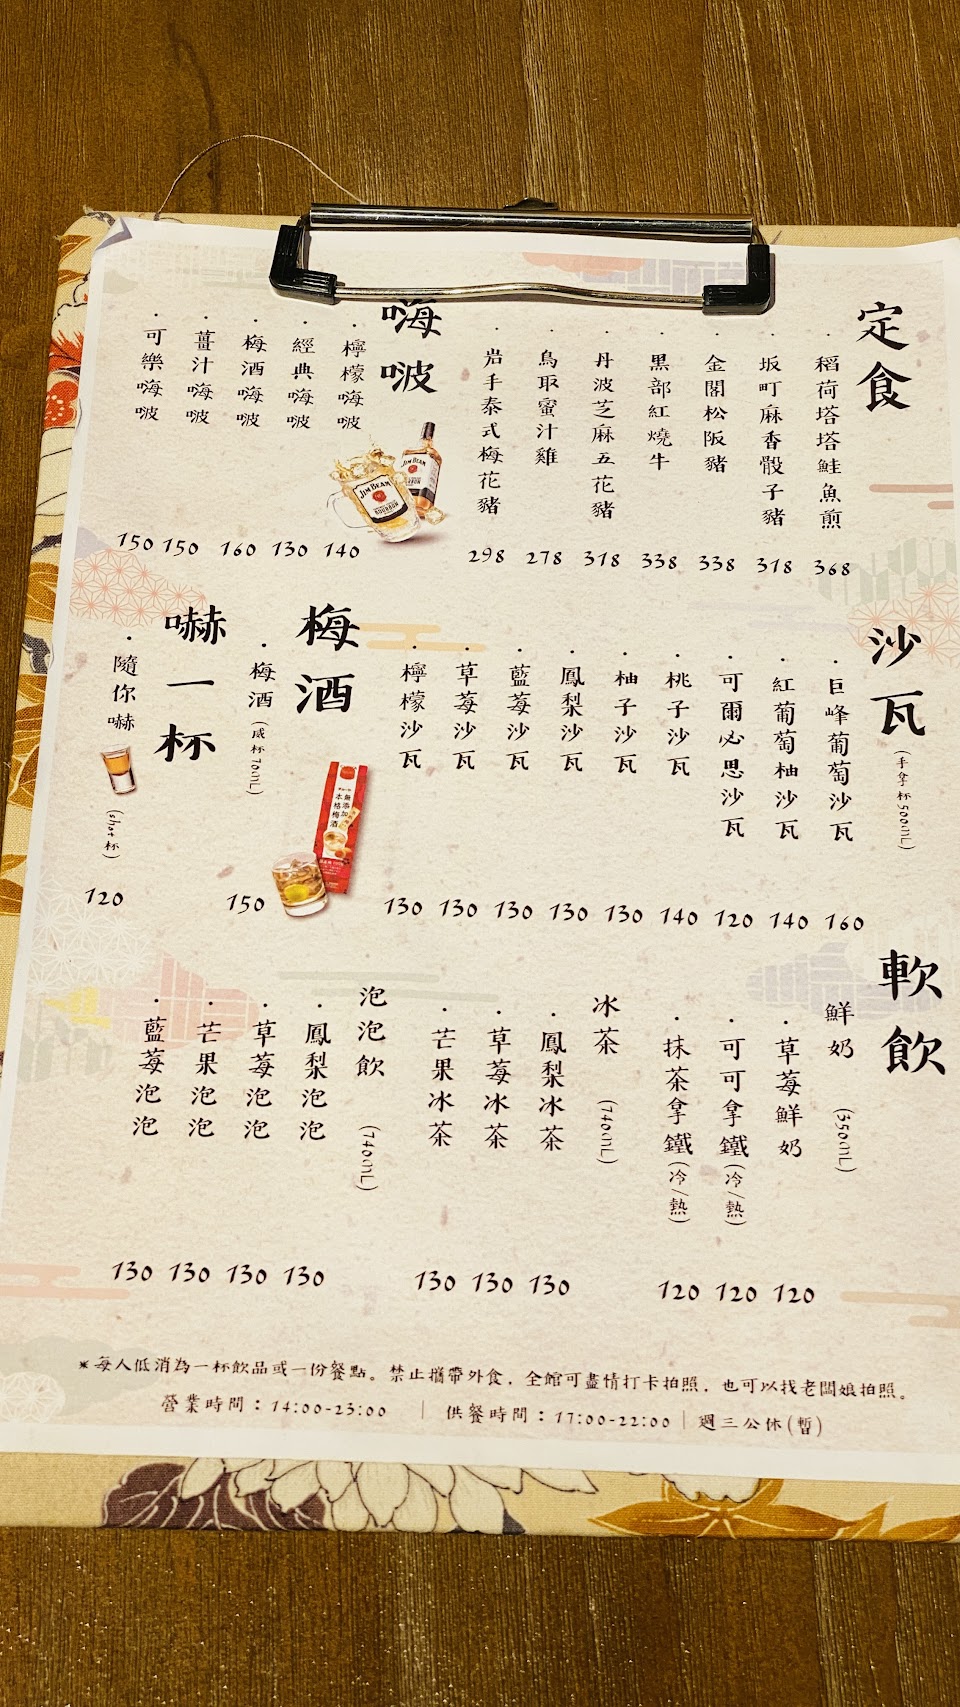 定食
・稻荷塔塔鮭魚煎 368
・坂町麻香骰子豬 318
・金閣松阪豬 338
・黑部紅燒牛 338
・丹波芝麻五花豬 318
・鳥取蜜汁雞 278
・岩手泰式梅花豬 298
嗨啵
・檸檬嗨啵 140
・經典嗨啵 130
・梅酒嗨啵 160
・薑汁嗨啵 150
・可樂嗨啵 150
JIM BEAM
JIM BEAM
BOURBON
沙瓦(手拿杯500ML)
・巨峰葡萄沙瓦 160
・紅葡萄柚沙瓦 140
・可爾必思沙瓦 120
・桃子沙瓦 140
・柚子沙瓦 130
・鳳梨沙瓦 130
・藍莓沙瓦 130
・草莓沙瓦 130
・檸檬沙瓦 130
梅酒
無添加
本格梅酒
・梅酒(威杯70ML) 150
嚇一杯
・隨你嚇(shot杯) 120
軟飲
鮮奶(350ML)
・草莓鮮奶 120
・可可拿鐵(冷/熱) 120
・抹茶拿鐵(冷/熱) 120
冰茶(740ML)
・鳳梨冰茶 130
・草莓冰茶 130
・芒果冰茶 130
泡泡飲(740ML)
・鳳梨泡泡 130
・草莓泡泡 130
・芒果泡泡 130
・藍莓泡泡 130
※每人低消為一杯飲品或一份餐點。禁止攜帶外食，全館可盡情打卡拍照，也可以找老闆娘拍照。
營業時間：14:00-23:00 ｜ 供餐時間：17:00-22:00｜週三公休(暫)